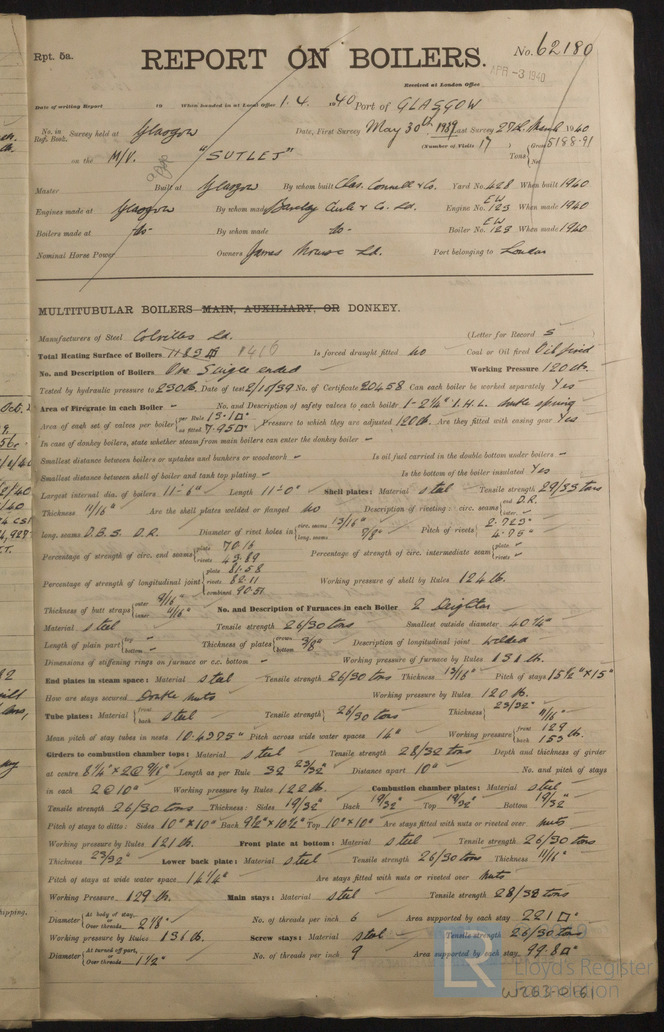 Rpt. 5a.
REPORT ON BOILERS.
No. 62180
APR -3 1940
Received at London Office
Date of writing Report 19 When handed in at Local Office 1.4. 1940 Port of GLASGOW
No. in Reg. Book. Survey held at Glasgow Date, First Survey May 30th 1939 Last Survey 27th March 1940
(Number of Visits 17) Gross 5188.91
on the M/V. "SUTLEJ" Tons Net
Master Built at Glasgow By whom built Chas. Connell & Co. Yard No. 428 When built 1940
Engines made at Glasgow By whom made Barclay Curle & Co. Ld. Engine No. EW 123 When made 1940
Boilers made at do- By whom made do- Boiler No. EW 123 When made 1940
Nominal Horse Power Owners James Nourse Ld. Port belonging to London
MULTITUBULAR BOILERS MAIN, AUXILIARY, OR DONKEY.
Manufacturers of Steel Colvilles Ld. (Letter for Record S)
Total Heating Surface of Boilers 1416 Is forced draught fitted no Coal or Oil fired Oil fired
No. and Description of Boilers One Single ended Working Pressure 120 lb.
Tested by hydraulic pressure to 230 lb. Date of test 2/10/39 No. of Certificate 20458 Can each boiler be worked separately Yes
Area of Firegrate in each Boiler - No. and Description of safety valves to each boiler 1-2¼" I.H.L. double spring
Area of each set of valves per boiler per Rule 7.51□" as fitted 7.95□" Pressure to which they are adjusted 120 lb. Are they fitted with easing gear Yes
In case of donkey boilers, state whether steam from main boilers can enter the donkey boiler -
Smallest distance between boilers or uptakes and bunkers or woodwork - Is oil fuel carried in the double bottom under boilers -
Smallest distance between shell of boiler and tank top plating - Is the bottom of the boiler insulated Yes
Largest internal dia. of boilers 11'-6" Length 11'-0" Shell plates: Material steel Tensile strength 29/33 tons
Thickness 11/16" Are the shell plates welded or flanged no Description of riveting: circ. seams end D.R. inter. -
long. seams D.B.S. D.R. Diameter of rivet holes in circ. seams 13/16" long. seams 7/8" Pitch of rivets 2.725" 4.75"
Percentage of strength of circ. end seams plate 70.16 rivets 42.89 Percentage of strength of circ. intermediate seam plate - rivets -
Percentage of strength of longitudinal joint plate 81.58 rivets 82.11 combined 90.51 Working pressure of shell by Rules 124 lb.
Thickness of butt straps outer 9/16" inner 11/16" No. and Description of Furnaces in each Boiler 2 Deighton
Material steel Tensile strength 26/30 tons Smallest outside diameter 40¼"
Length of plain part top - bottom - Thickness of plates crown bottom 3/8" Description of longitudinal joint welded
Dimensions of stiffening rings on furnace or c.c. bottom - Working pressure of furnace by Rules 131 lb.
End plates in steam space: Material steel Tensile strength 26/30 tons Thickness 13/16" Pitch of stays 15½" × 15"
How are stays secured Double nuts Working pressure by Rules 120 lb.
Tube plates: Material front back steel Tensile strength 26/30 tons Thickness 23/32" 11/16"
Mean pitch of stay tubes in nests 10.4375" Pitch across wide water spaces 14" Working pressure front 129 back 153 lb.
Girders to combustion chamber tops: Material steel Tensile strength 28/32 tons Depth and thickness of girder
at centre 8¼" × 2 @ 9/16" Length as per Rule 32 23/32" Distance apart 10" No. and pitch of stays
in each 2 @ 10" Working pressure by Rules 122 lb. Combustion chamber plates: Material steel
Tensile strength 26/30 tons Thickness: Sides 19/32" Back 19/32" Top 19/32" Bottom 19/32"
Pitch of stays to ditto: Sides 10" × 10" Back 9½" × 10½" Top 10" × 10" Are stays fitted with nuts or riveted over nuts
Working pressure by Rules 121 lb. Front plate at bottom: Material steel Tensile strength 26/30 tons
Thickness 23/32" Lower back plate: Material steel Tensile strength 26/30 tons Thickness 11/16"
Pitch of stays at wide water space 14¼" Are stays fitted with nuts or riveted over nuts
Working Pressure 129 lb. Main stays: Material steel Tensile strength 28/32 tons
Diameter At body of stay, or Over threads 2⅛" No. of threads per inch 6 Area supported by each stay 221 □"
Working pressure by Rules 136 lb. Screw stays: Material steel Tensile strength 26/30 tons
Diameter At turned off part, or Over threads 1½" No. of threads per inch 9 Area supported by each stay 99.8□"
LR
Lloyd's Register
Foundation
W263-0161